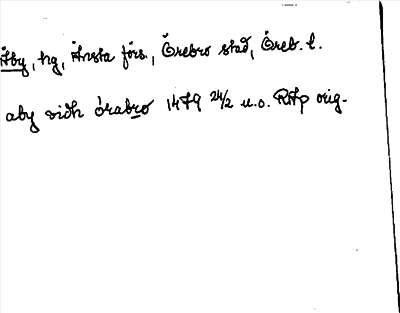 Åby, hg, Ånsta förs., Örebro stad, Öreb. l.
aby widh örabro 1479 24/2 u.o. RAp orig.